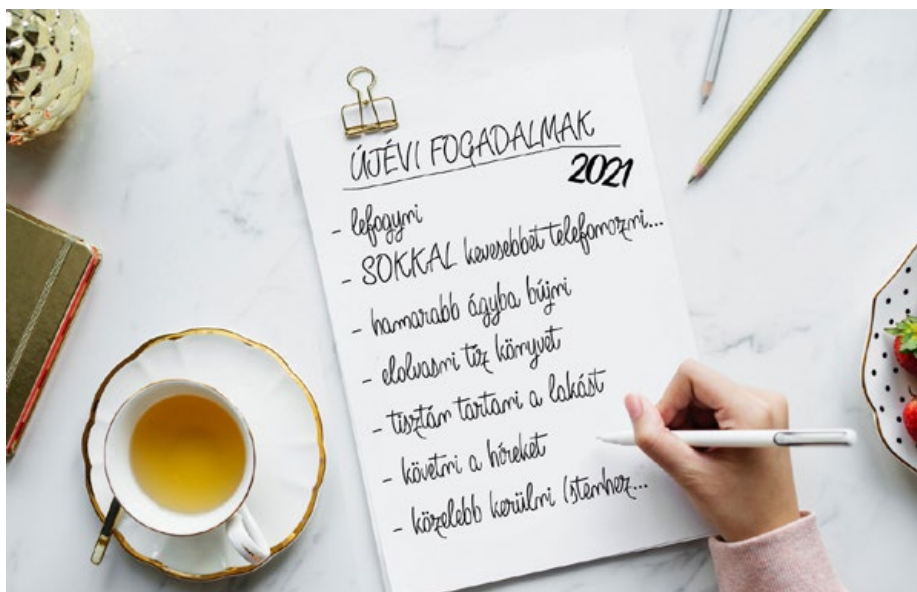 ÚJÉVI FOGADALMAK
2021
- lefogyni
- SOKKAL kevesebbet telefonozni...
- hamarabb ágyba bújni
- elolvasni tíz könyvet
- tisztán tartani a lakást
- követni a híreket
- közelebb kerülni Istenhez...